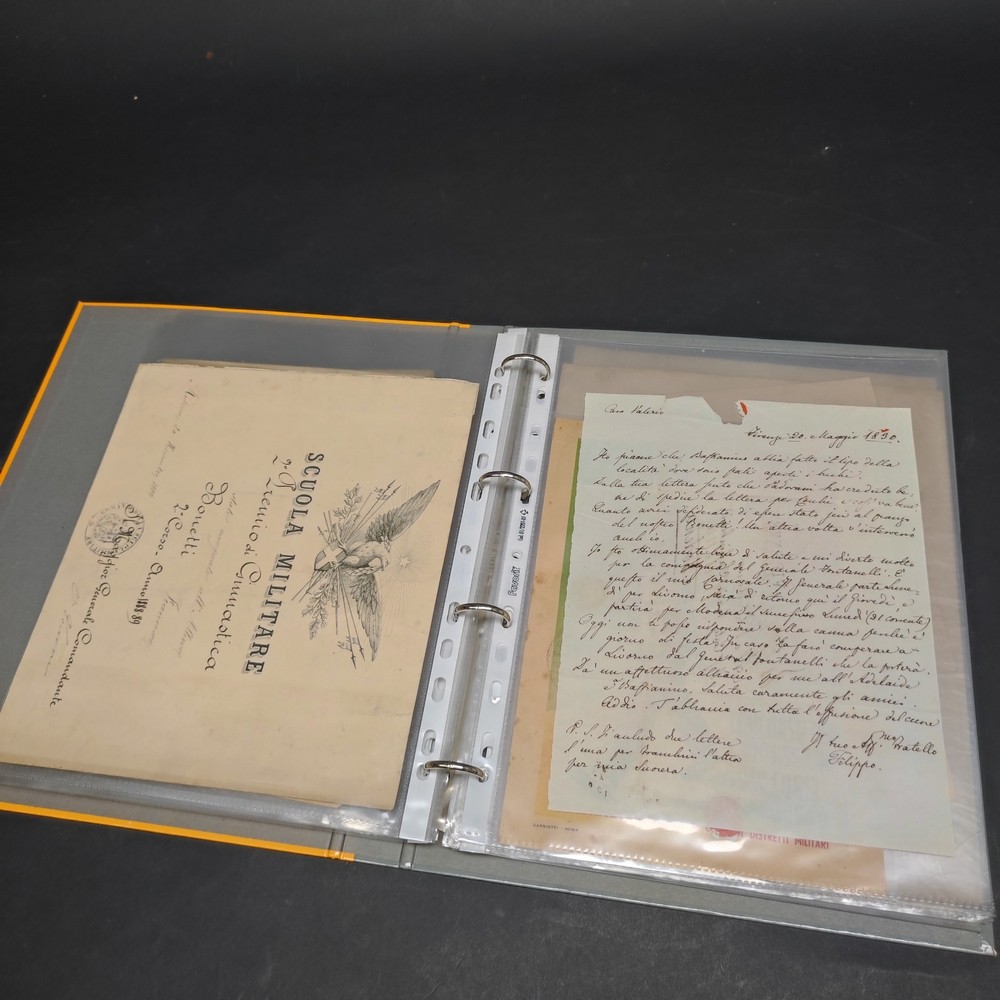 SCUOLA MILITARE
2º Premio di Ginnastica
Bonetti
2º Corso - Anno 1888-89
Il Maggior Generale Comandante
Caro Valerio
Firenze 20. Maggio 1830.
Ho piacere che Bassianino abbia fatto il tipo della
località dove sono stati aperti i buchi.
Sulla tua lettera sento che Padovani ha creduto be
ne di spedire la lettera per Torchi e così va bene
Quanto avrei desiderato di essere stato jeri al pranzo
del nostro Bonetti! Un'altra volta v'interverrò
anch'io.
Io sto ottimamente bene di salute e mi diverto molto
per la compagnia del Generale Fontanelli. È
questo il mio Carnovale. Il Generale parte Lune-
dì per Livorno. Sarà di ritorno qui il Giovedì, e
partirà per Modena il susseguente Lunedì (31 corrente)
Oggi non ti posso rispondere sulla canna perchè è
giorno di festa. In caso la farò comperare a
Livorno dal General Fontanelli che la porterà.
Dà un affettuoso abbraccio per me all'Adelaide
e Bassianino. Saluta caramente gli amici.
Addio. T'abbraccia con tutta l'effusione del cuore
Il tuo Aff.mo Fratello
Filippo.
P. S. Ti accludo due lettere
l'una per Brambini l'altra
per mia Suocera.
DISTRETTI MILITARI